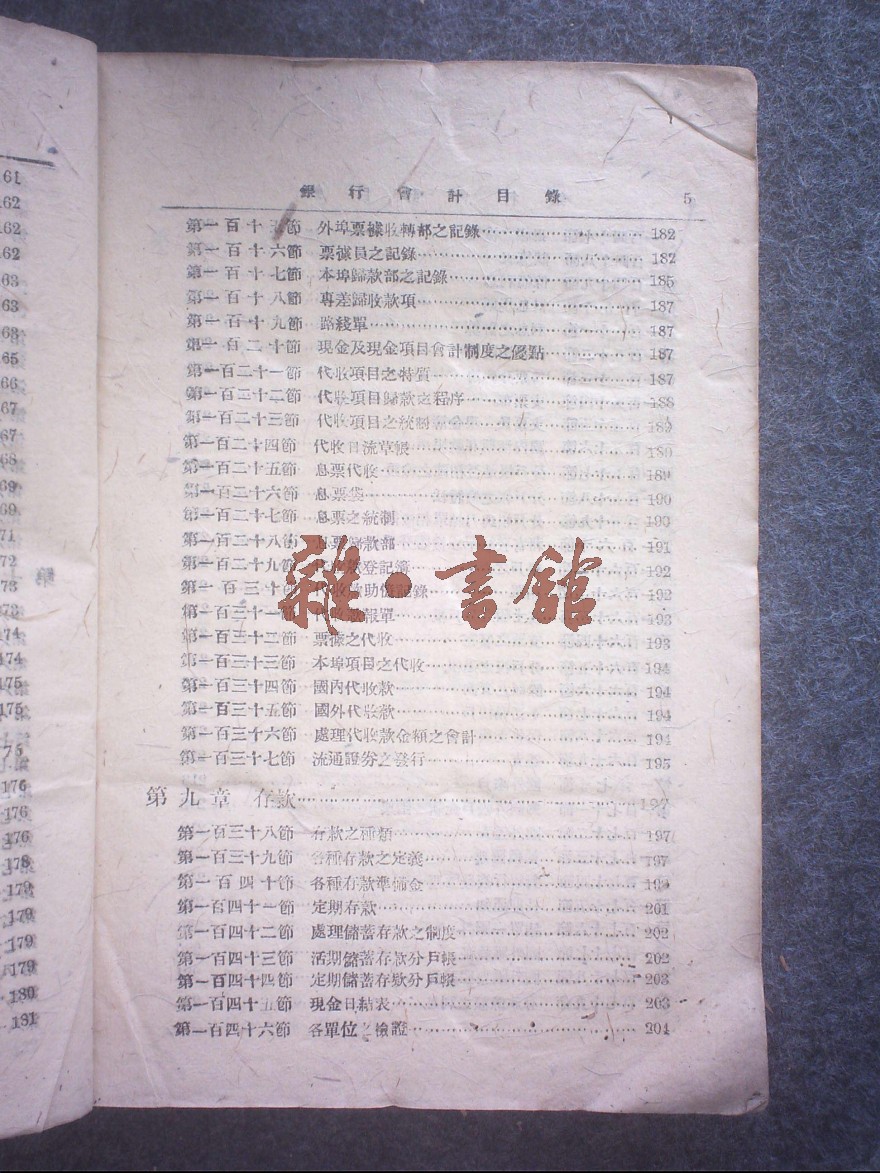 銀行會計目錄 5
第一百十五節 外埠票據收轉部之記錄 182
第一百十六節 票據員之記錄 182
第一百十七節 本埠歸款部之記錄 185
第一百十八節 專差歸收款項 187
第一百十九節 路綫單 187
第一百二十節 現金及現金項目會計制度之優點 187
第一百二十一節 代收項目之特質 187
第一百二十二節 代收項目歸款之程序 188
第一百二十三節 代收項目之統制 189
第一百二十四節 代收日流草帳 189
第一百二十五節 息票代收 189
第一百二十六節 息票袋 190
第一百二十七節 息票之統制 190
第一百二十八節 息票歸款部 191
第一百二十九節 登記簿 192
第一百三十節 助 記錄 192
第一百三十一節 報單 193
第一百三十二節 票據之代收 193
第一百三十三節 本埠項目之代收 194
第一百三十四節 國內代收款 194
第一百三十五節 國外代收款 194
第一百三十六節 處理代收款金額之會計 194
第一百三十七節 流通證券之發行 195
第九章 存款 197
第一百三十八節 存款之種類 197
第一百三十九節 各種存款之定義 197
第一百四十節 各種存款準備金 199
第一百四十一節 定期存款 201
第一百四十二節 處理儲蓄存款之制度 202
第一百四十三節 活期儲蓄存款分戶帳 202
第一百四十四節 定期儲蓄存款分戶帳 203
第一百四十五節 現金日結表 203
第一百四十六節 各單位之檢證 204
雜·書館
61
62
62
62
63
63
63
65
66
67
67
68
69
69
71
72
73
173
174
174
175
175
175
176
176
176
178
179
179
179
179
180
181